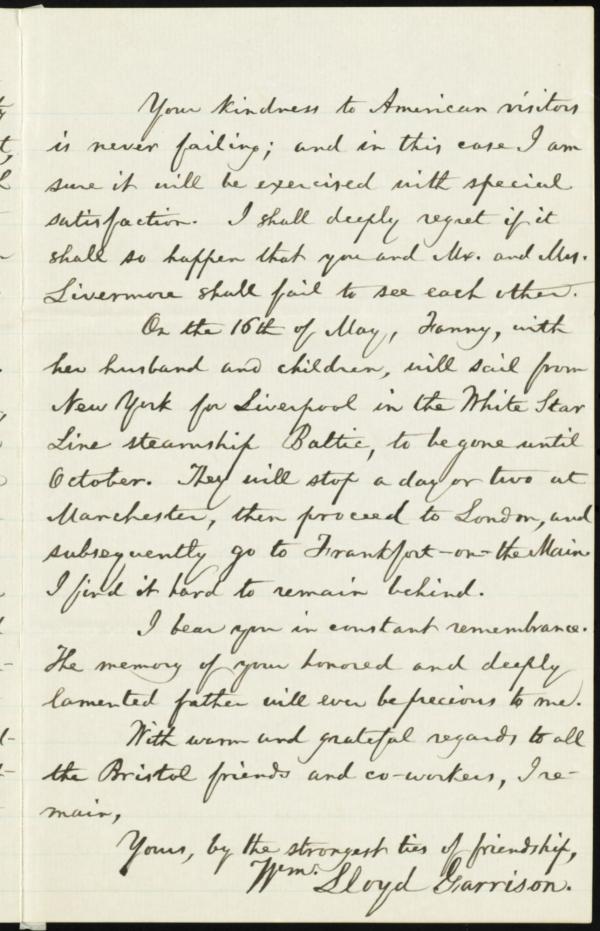 Your kindness to American visitors
is never failing; and in this case I am
sure it will be exercised with special
satisfaction. I shall deeply regret if it
shall so happen that you and Mr. and Mrs.
Livermore shall fail to see each other.
On the 16th of May, Fanny, with
her husband and children, will sail from
New York for Liverpool in the White Star
Line steamship Baltic, to be gone until
October. They will stop a day or two at
Manchester, then proceed to London, and
subsequently go to Frankfort-on-the Main.
I find it hard to remain behind.
I bear you in constant remembrance.
The memory of your honored and deeply
lamented father will ever be precious to me.
With warm and grateful regards to all
the Bristol friends and co-workers, I re-
main,
Yours, by the strongest ties of friendship,
Wm. Lloyd Garrison.